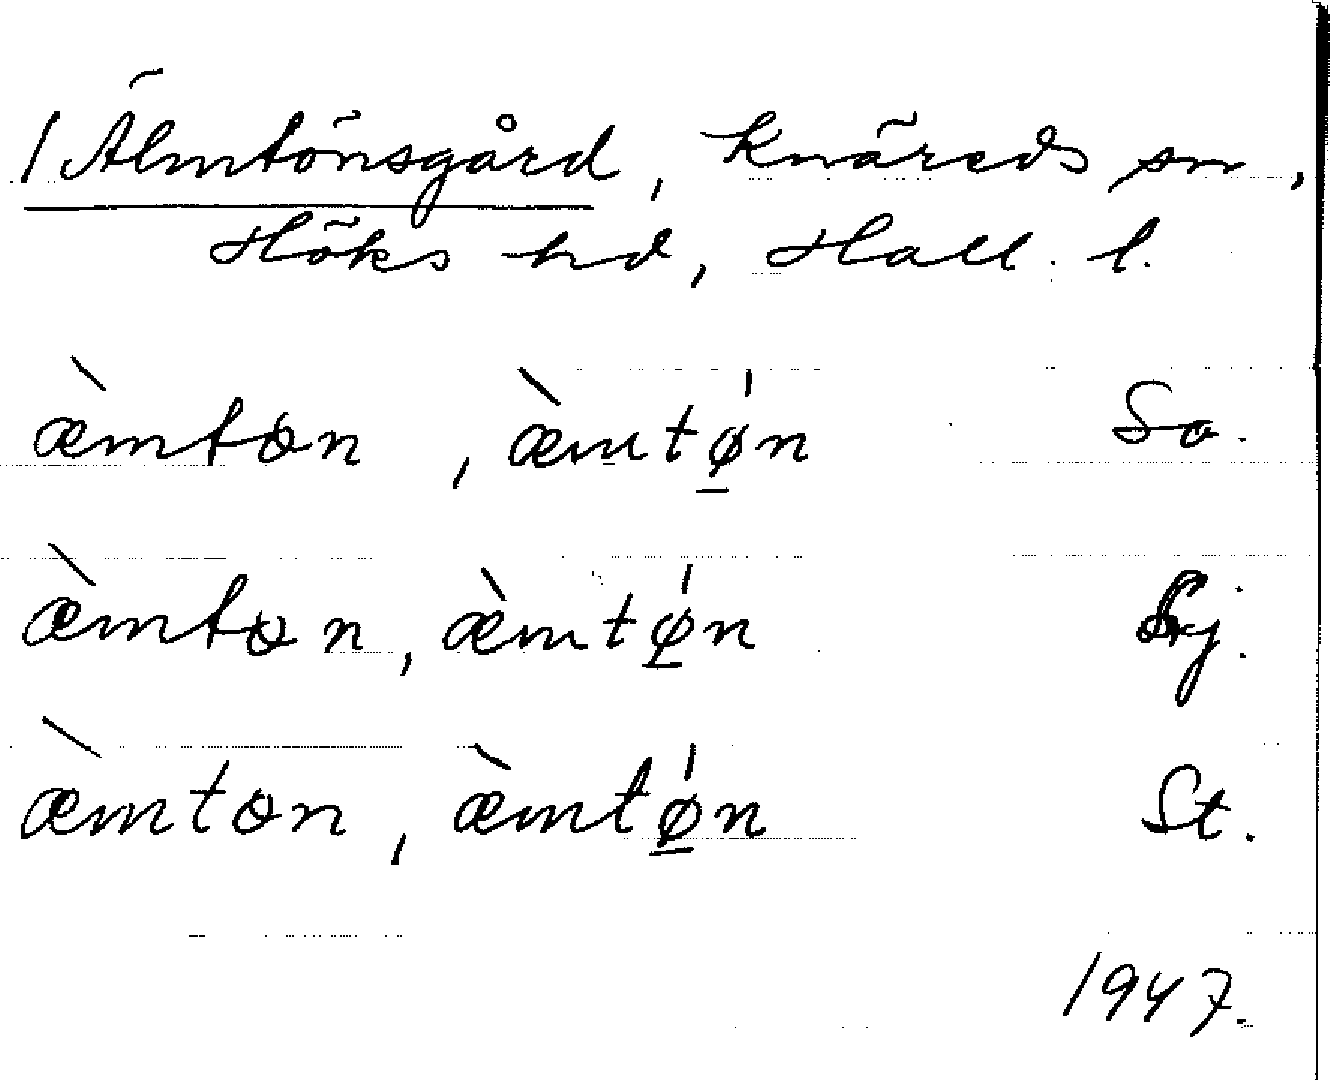 1 Älmtönsgård, Knäreds sn,
Höks hd, Hall. l.
æ̀mtɷn, æ̀mtǿ̲n So.
æ̀mtɷn, æ̀mtǿ̲n Skj.
æ̀mtɷn, æ̀mtǿ̲n St.
1947.